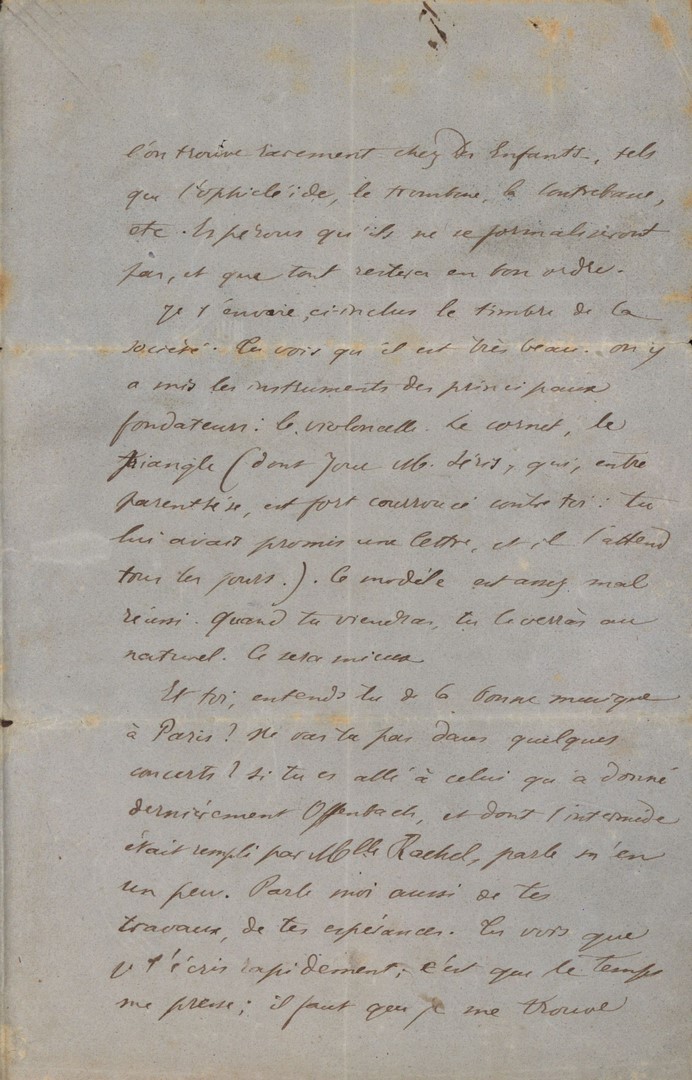 l'on trouve rarement chez des Enfants, tels
que l'ophicléide, le trombone, la Contrebasse,
etc. Espérons qu'ils ne se formaliseront
pas, et que tout restera en bon ordre.
Je t'envoie, ci-inclus le timbre de la
société. Tu vois qu'il est très beau. on y
a mis les instruments des principaux
fondateurs: le violoncelle. Le cornet, le
triangle (dont joue M. Séris, qui, entre
parenthèse, est fort courroucé contre toi: tu
lui avais promis une lettre, et il l'attend
tous les jours.). Ce modèle est assez mal
réussi. Quand tu viendras, tu le verras au
naturel. Ce sera mieux
Et toi, entends tu de la bonne musique
à Paris? Ne vas tu pas dans quelques
concerts? Si tu es allé à celui qu'a donné
dernièrement Offenbach, et dont l'intermède
était rempli par Mlle Rachel, parle m'en
un peu. Parle moi aussi de tes
travaux, de tes espérances. Tu vois que
je t'écris rapidement; c'est que le temps
me presse; il faut que je me trouve